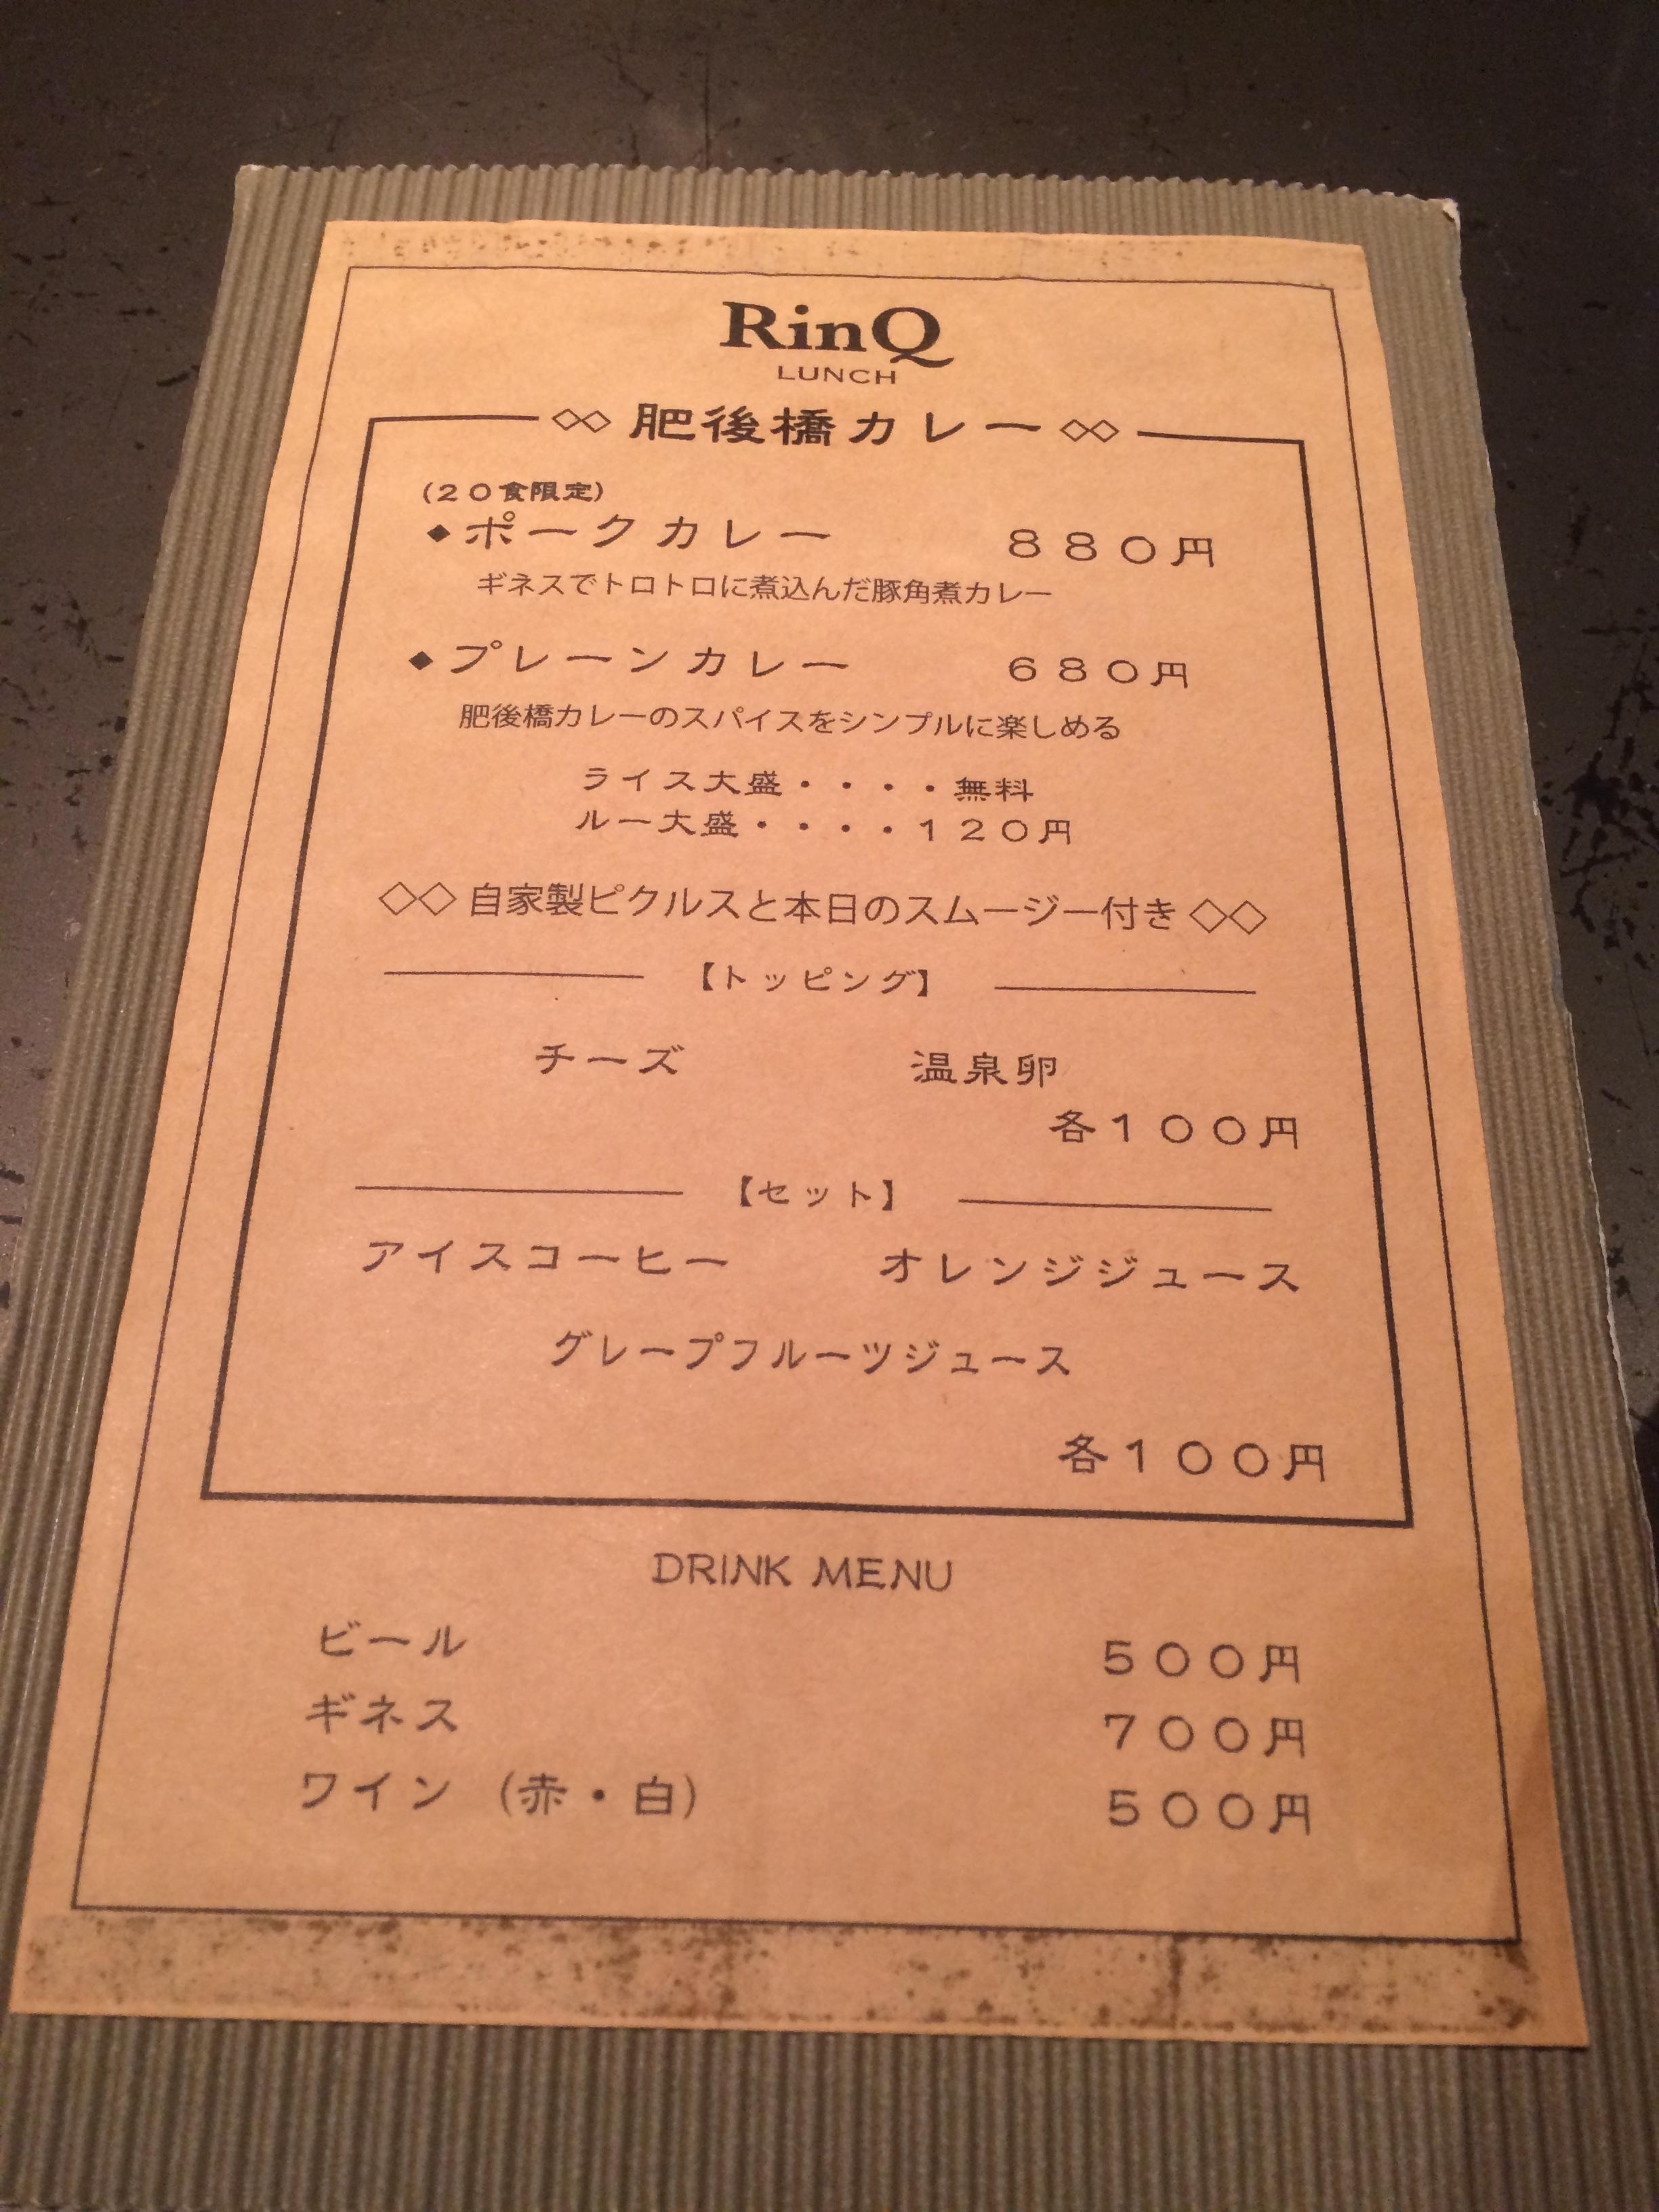 RinQ
LUNCH
◇◇ 肥後橋カレー ◇◇
(20食限定)
◆ポークカレー 880円
ギネスでトロトロに煮込んだ豚角煮カレー
◆プレーンカレー 680円
肥後橋カレーのスパイスをシンプルに楽しめる
ライス大盛・・・・無料
ルー大盛・・・・120円
◇◇自家製ピクルスと本日のスムージー付き◇◇
【トッピング】
チーズ 温泉卵
各100円
【セット】
アイスコーヒー オレンジジュース
グレープフルーツジュース
各100円
DRINK MENU
ビール 500円
ギネス 700円
ワイン (赤・白) 500円